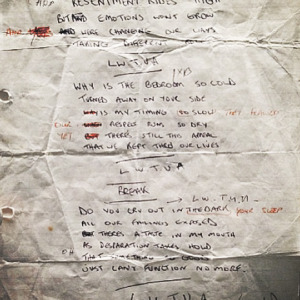 RESENTMENT RIDES HIGH
BUT EMOTIONS WONT GROW
AND WERE CHANGING OUR WAYS
TAKING DIFFERENT
L.W.T.U.A
WHY IS THE BEDROOM SO COLD
TURNED AWAY ON YOUR SIDE
IS MY TIMING SO SLOW THEY
OUR RESPECT RUN SO DRY
YET THERES STILL THIS APPEAL
THAT WE KEPT THRU OUR LIVES
L.W.T.U.A
BREAK
DO YOU CRY OUT IN THE DARK YOUR SLEEP
ALL OUR FAILINGS EXPOSED
THERES A TASTE IN MY MOUTH
AS DESPARATION TAKES HOLD
THAT SOMETHING SO GOOD
JUST CANT FUNCTION NO MORE